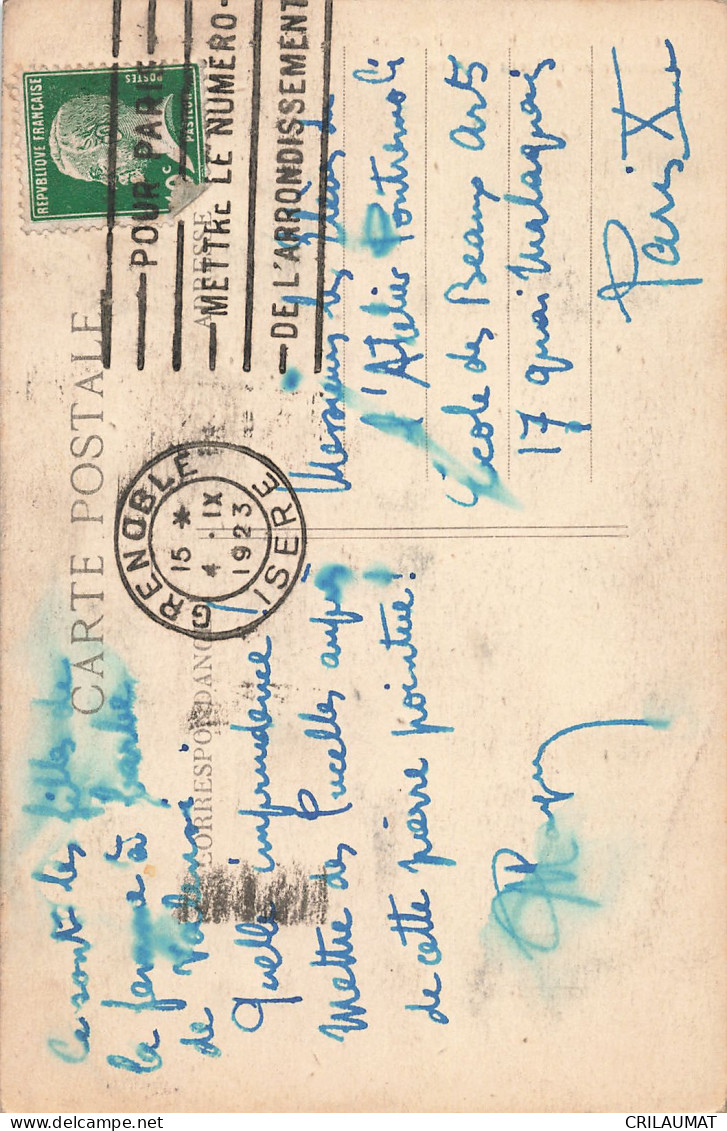 CARTE POSTALE
CORRESPONDANCE
ADRESSE
REPVBLIQVE FRANÇAISE
POSTES
PASTEUR
POUR PARIS
METTRE LE NUMÉRO
DE L'ARRONDISSEMENT
GRENOBLE
15 *
4 . IX
1923
ISERE
Ce sont les filles de
la femme à barbe,
de
Quelle imprudence
Mettre des Pucelles auprès
de cette pierre pointue!
Messieurs les élèves de
l'Atelier Pontremoli
Ecole des Beaux Arts
17 quai Malaquais
Paris
CRILAUMAT